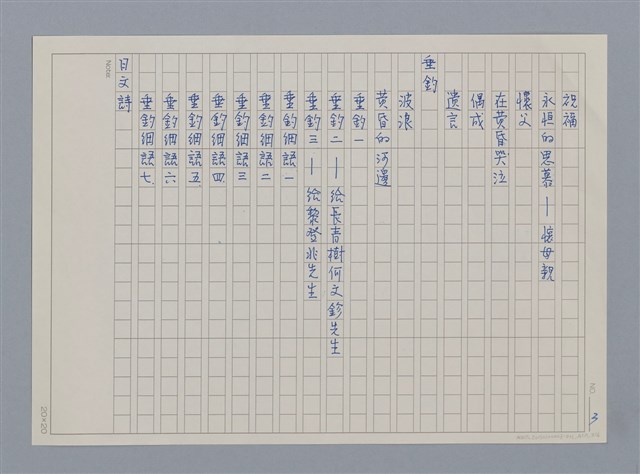 NO 3
祝福
永恒的思慕—懷母親
懷父
在黃昏哭泣
偶成
遺言
垂釣
波浪
黃昏的河邊
垂釣一
垂釣二—給長青樹何文鉁先生
垂釣三—給黎登兆先生
垂釣細語一
垂釣細語二
垂釣細語三
垂釣細語四
垂釣細語五
垂釣細語六
垂釣細語七
日文詩
Note
20×20